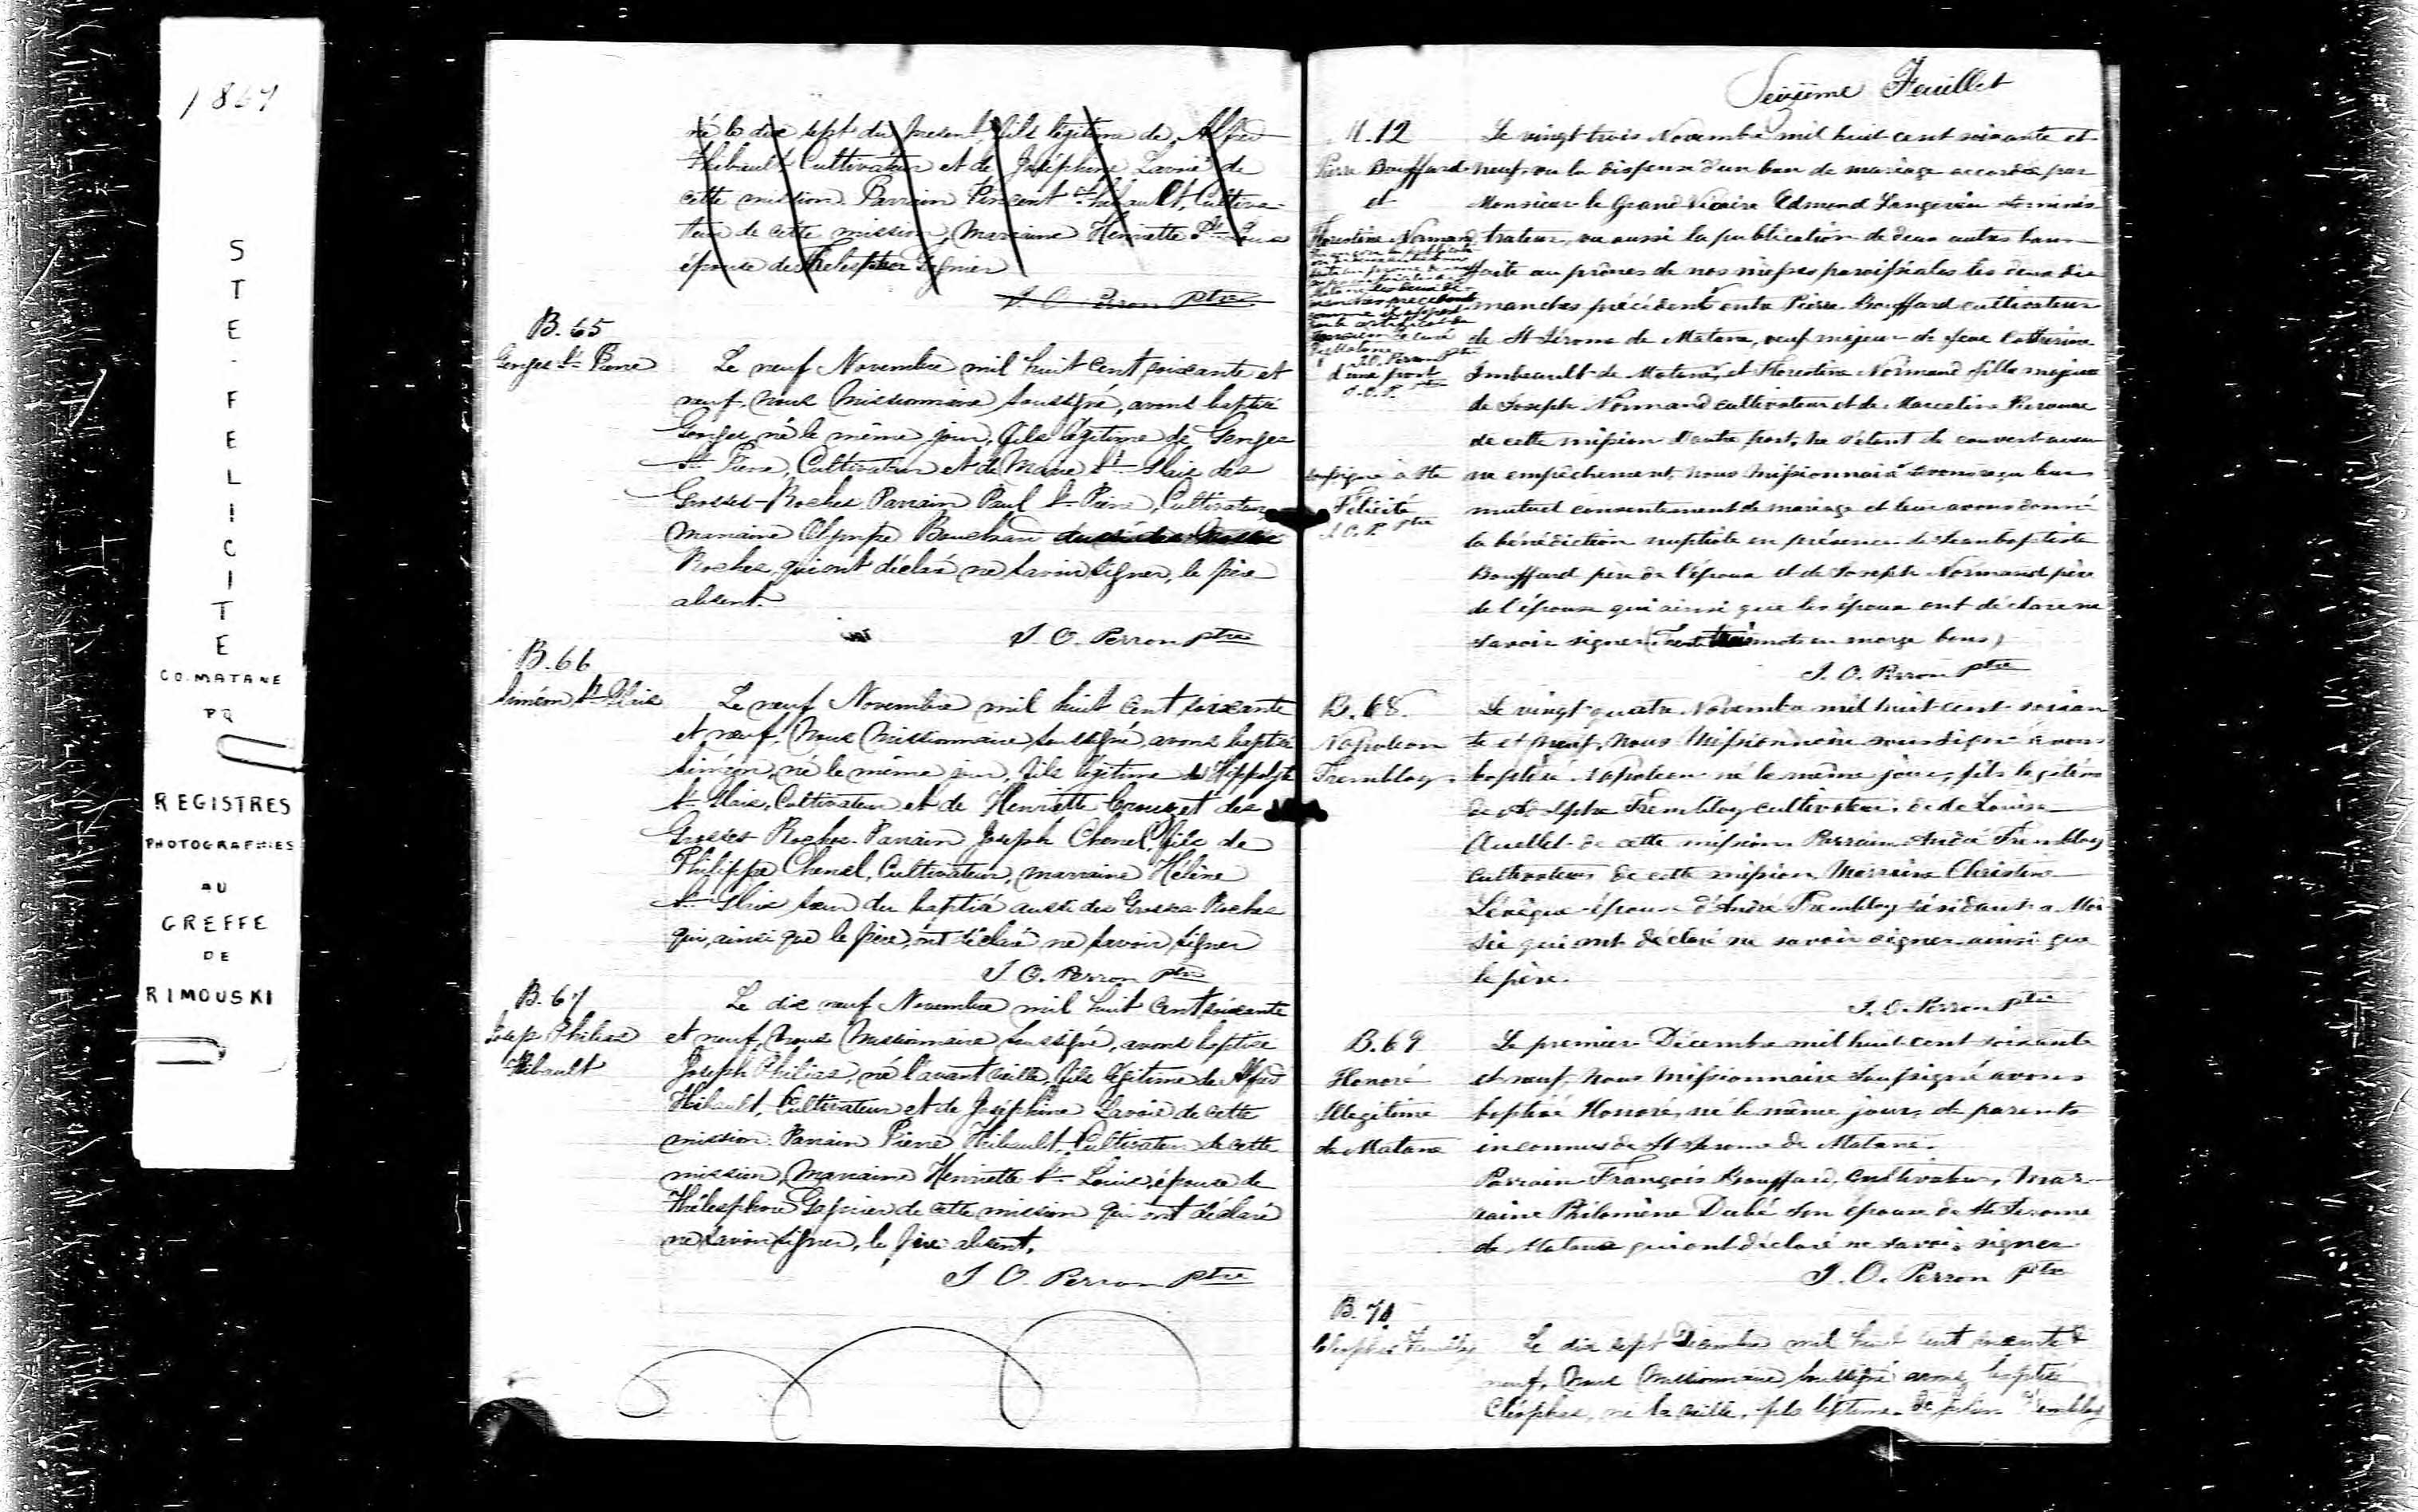 1869
STE-FELICITE
CO. MATANE
PQ
REGISTRES
PHOTOGRAPHIES
AU
GREFFE
DE
RIMOUSKI
né le dix sept du present, fils légitime de Alfred
Thibault Cultivateur et de Joséphine Lavoie de
cette mission. Parrain Vincent Thibault, Cultiva-
teur de cette mission, Marraine Henriette St Louis
épouse de Thelesphor Gagnier
J. O. Perron Ptre
B. 65
Georges St Pierre
Le neuf Novembre mil huit cent soixante et
neuf, Nous Missionnaire soussigné, avons baptisé
Georges, né le même jour, fils légitime de Georges
St Pierre, Cultivateur et de Marie St Glais des
Grosses-Roches. Parrain Paul St Pierre, Cultivateur
marraine Olympe Bouchard
Roches, qui ont déclaré ne savoir signer, le père
absent.
J. O. Perron Ptre
B. 66
Siméon St Glais
Le neuf Novembre mil huit cent soixante
et neuf, Nous Missionnaire soussigné, avons baptisé
Siméon, né le même jour, fils légitime de Hippolyte
St Glais, Cultivateur et de Henriette des
Grosses Roches. Parrain Joseph Chenel, fils de
Philippe Chenel, Cultivateur, marraine Hélène
St Glais sœur du baptisé aussi des Grosses Roches
qui, ainsi que le père, ont déclaré ne savoir signer
J. O. Perron Ptre
B. 67
Josep Philias
Thibault
Le dix neuf Novembre mil huit cent soixante
et neuf, Nous Missionnaire soussigné, avons baptisé
Joseph Philias, né l'avant veille, fils légitime de Alfred
Thibault, Cultivateur et de Joséphine Lavoie de cette
mission. Parrain Pierre Thibault, Cultivateur de cette
mission, Marraine Henriette St Louis, épouse de
Thélesphore Gagnier de cette mission qui ont déclaré
ne savoir signer, le père absent.
J. O. Perron Ptre
Seizième Feuillet
M. 12
Pierre Bouffard
et
Florestine Normand
d'une part
J. O. P. Ptre
soussigné à Ste
Félicité
J. O. P. Ptre
Le vingt trois Novembre mil huit cent soixante et
neuf, vu la dispense d'un ban de mariage accordée par
Monsieur le Grand Vicaire Edmond Langevin
trateur, vu aussi la publication de deux autres bans
faite au prônes de nos messes paroissiales les deux di
manches précédents entre Pierre Bouffard cultivateur
de St Jérome de Matane, veuf majeur de feue Catherine
Imbeault de Matane, et Florestine Normand fille majeure
de Joseph Normand cultivateur et de Marceline
de cette mission d'autre part, ne s'étant découvert aucu
ne empêchement, Nous Missionnaire avons reçu leur
mutuel consentement de mariage et leur avons donné
la bénédiction nuptiale en présence de Jean baptiste
Bouffard père de l'époux et de Joseph Normand père
de l'épouse qui ainsi que les époux ont déclaré ne
savoir signer mots en marge bons)
J. O. Perron Ptre
B. 68
Napoleon
Tremblay
Le vingt quatre Novembre mil huit cent soixan
te et neuf, Nous Missionnaire soussigné avons
baptisé Napoleon né le même jour, fils légitime
de Tremblay cultivateur & de Louise
Ouellet de cette mission Parrain André Tremblay
cultivateur de cette mission, Marraine Christine
Lévêque épouse d'André Tremblay résidants a Moi
sie qui ont déclaré ne savoir signer ainsi que
le père.
J. O. Perron Ptre
B. 69
Honoré
Illegitime
de Matane
Le premier Décembre mil huit cent soixante
et neuf, Nous Missionnaire soussigné avons
baptisé Honoré, né le même jour, de parents
inconnus de St Jerome de Matane.
Parrain François Bouffard, Cultivateur, Mar-
raine Philomène Dubé son épouse de St Jerome
de Matane qui ont déclaré ne savoir signer
J. O. Perron Ptre
B. 70
Cléophas Tremblay
Le dix sept Décembre mil huit cent soixante &
neuf, Nous Missionnaire soussigné avons baptisé
Cléophas, né la veille, fils légitime de Tremblay